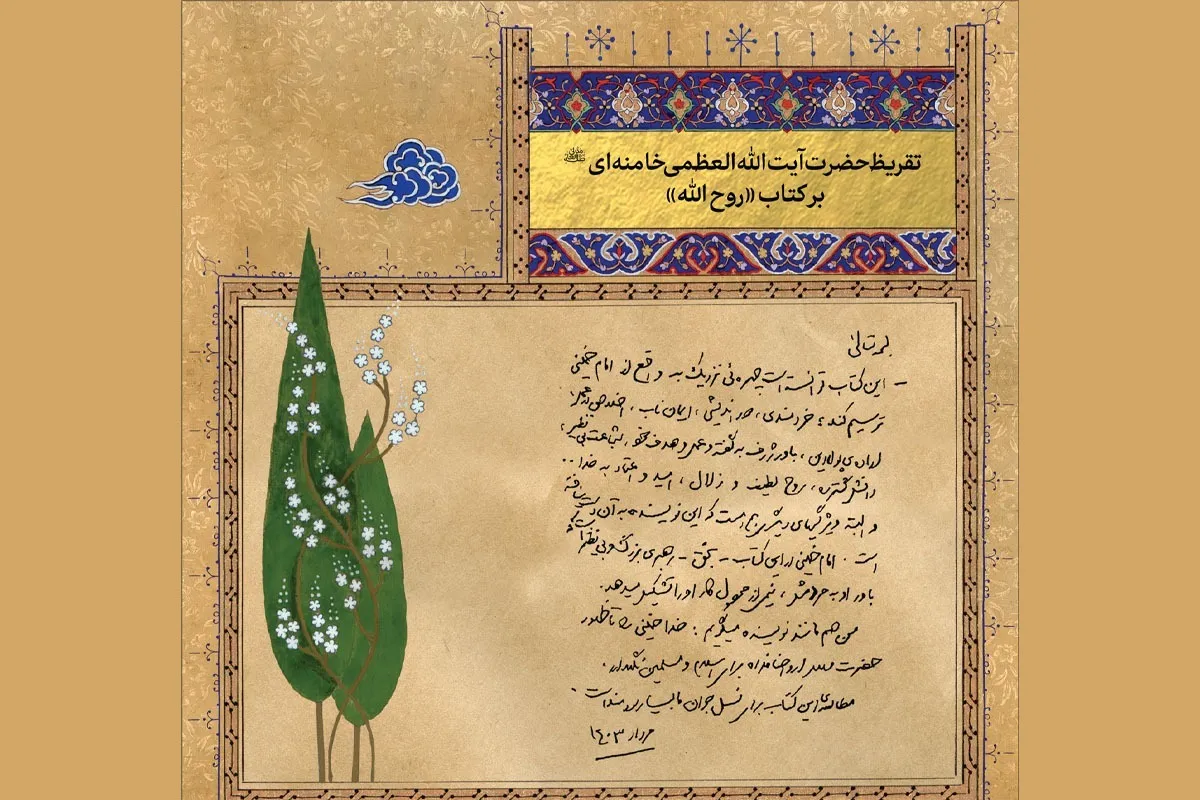 تقریظ حضرت آیت الله العظمی خامنه ای
بر کتاب ((روح الله))
بسمه تعالی
- این کتاب توانسته است چهره‌ئی نزدیک به واقع از امام خمینی
ترسیم کند؛ خردمندی، دوراندیشی، ایمان ناب، اخلاص در عمل،
اراده‌ی پولادین، باور ژرف به گفته و عمل و هدف خود، شجاعت بی نظیر،
دانش گسترده، روح لطیف و زلال، امید و اعتماد به خدا ..
و البته ویژگیهای دیگری هم هست که این نویسنده به آن دست نیافته
است. امام خمینی در این کتاب - بحق - رهبری بزرگ و بی نظیر است که
باور او به مردمش، نیمی از محصول کار او را تشکیل میدهد.
من هم مانند نویسنده میگویم: خدا خمینی را تا ظهور
حضرت مهدی ارواحنا فداه برای اسلام و مسلمین نگهدارد.
مطالعه‌ی این کتاب برای نسل جوان ما بسیار سودمند است.
مرداد ۱۴۰۳